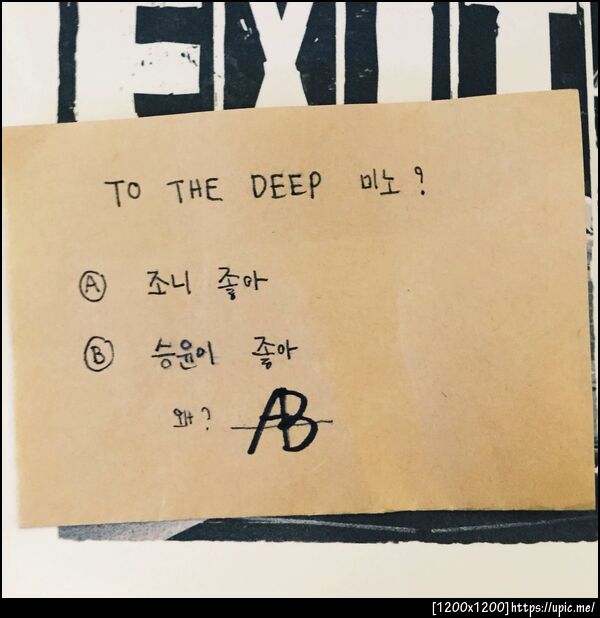 EXIT
TO THE DEEP 미노?
Ⓐ 조니 좋아
Ⓑ 승윤이 좋아
왜? AB
[1200x1200]https://upic.me/